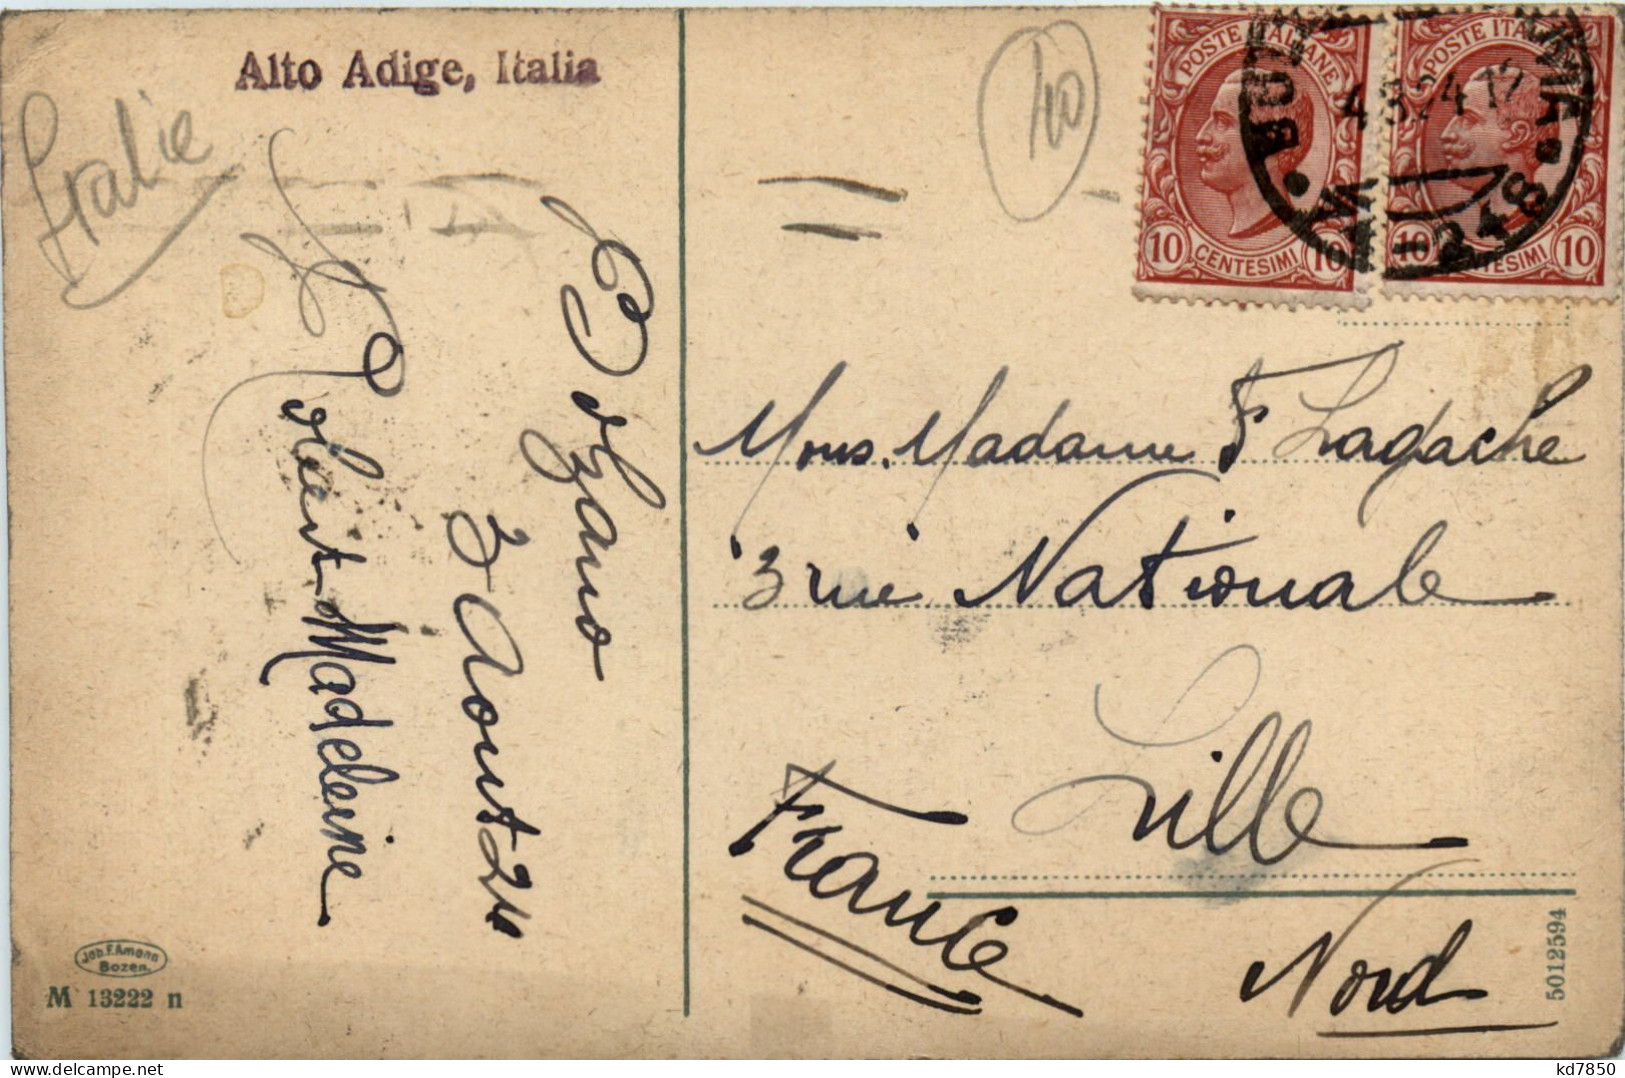 Alto Adige, Italia
Italie
Bolzano
3 Aout 24
Robert Madeleine
Job. F. Amonn
Bozen.
M 13222 n
10
POSTE ITALIANE
10 CENTESIMI 10
POSTE ITALIANE
10 CENTESIMI 10
4 8 24 12
Mons. Madame F Lagache
3 rue Nationale
Lille
France
Nord
5012594
delcampe.net
kd7850